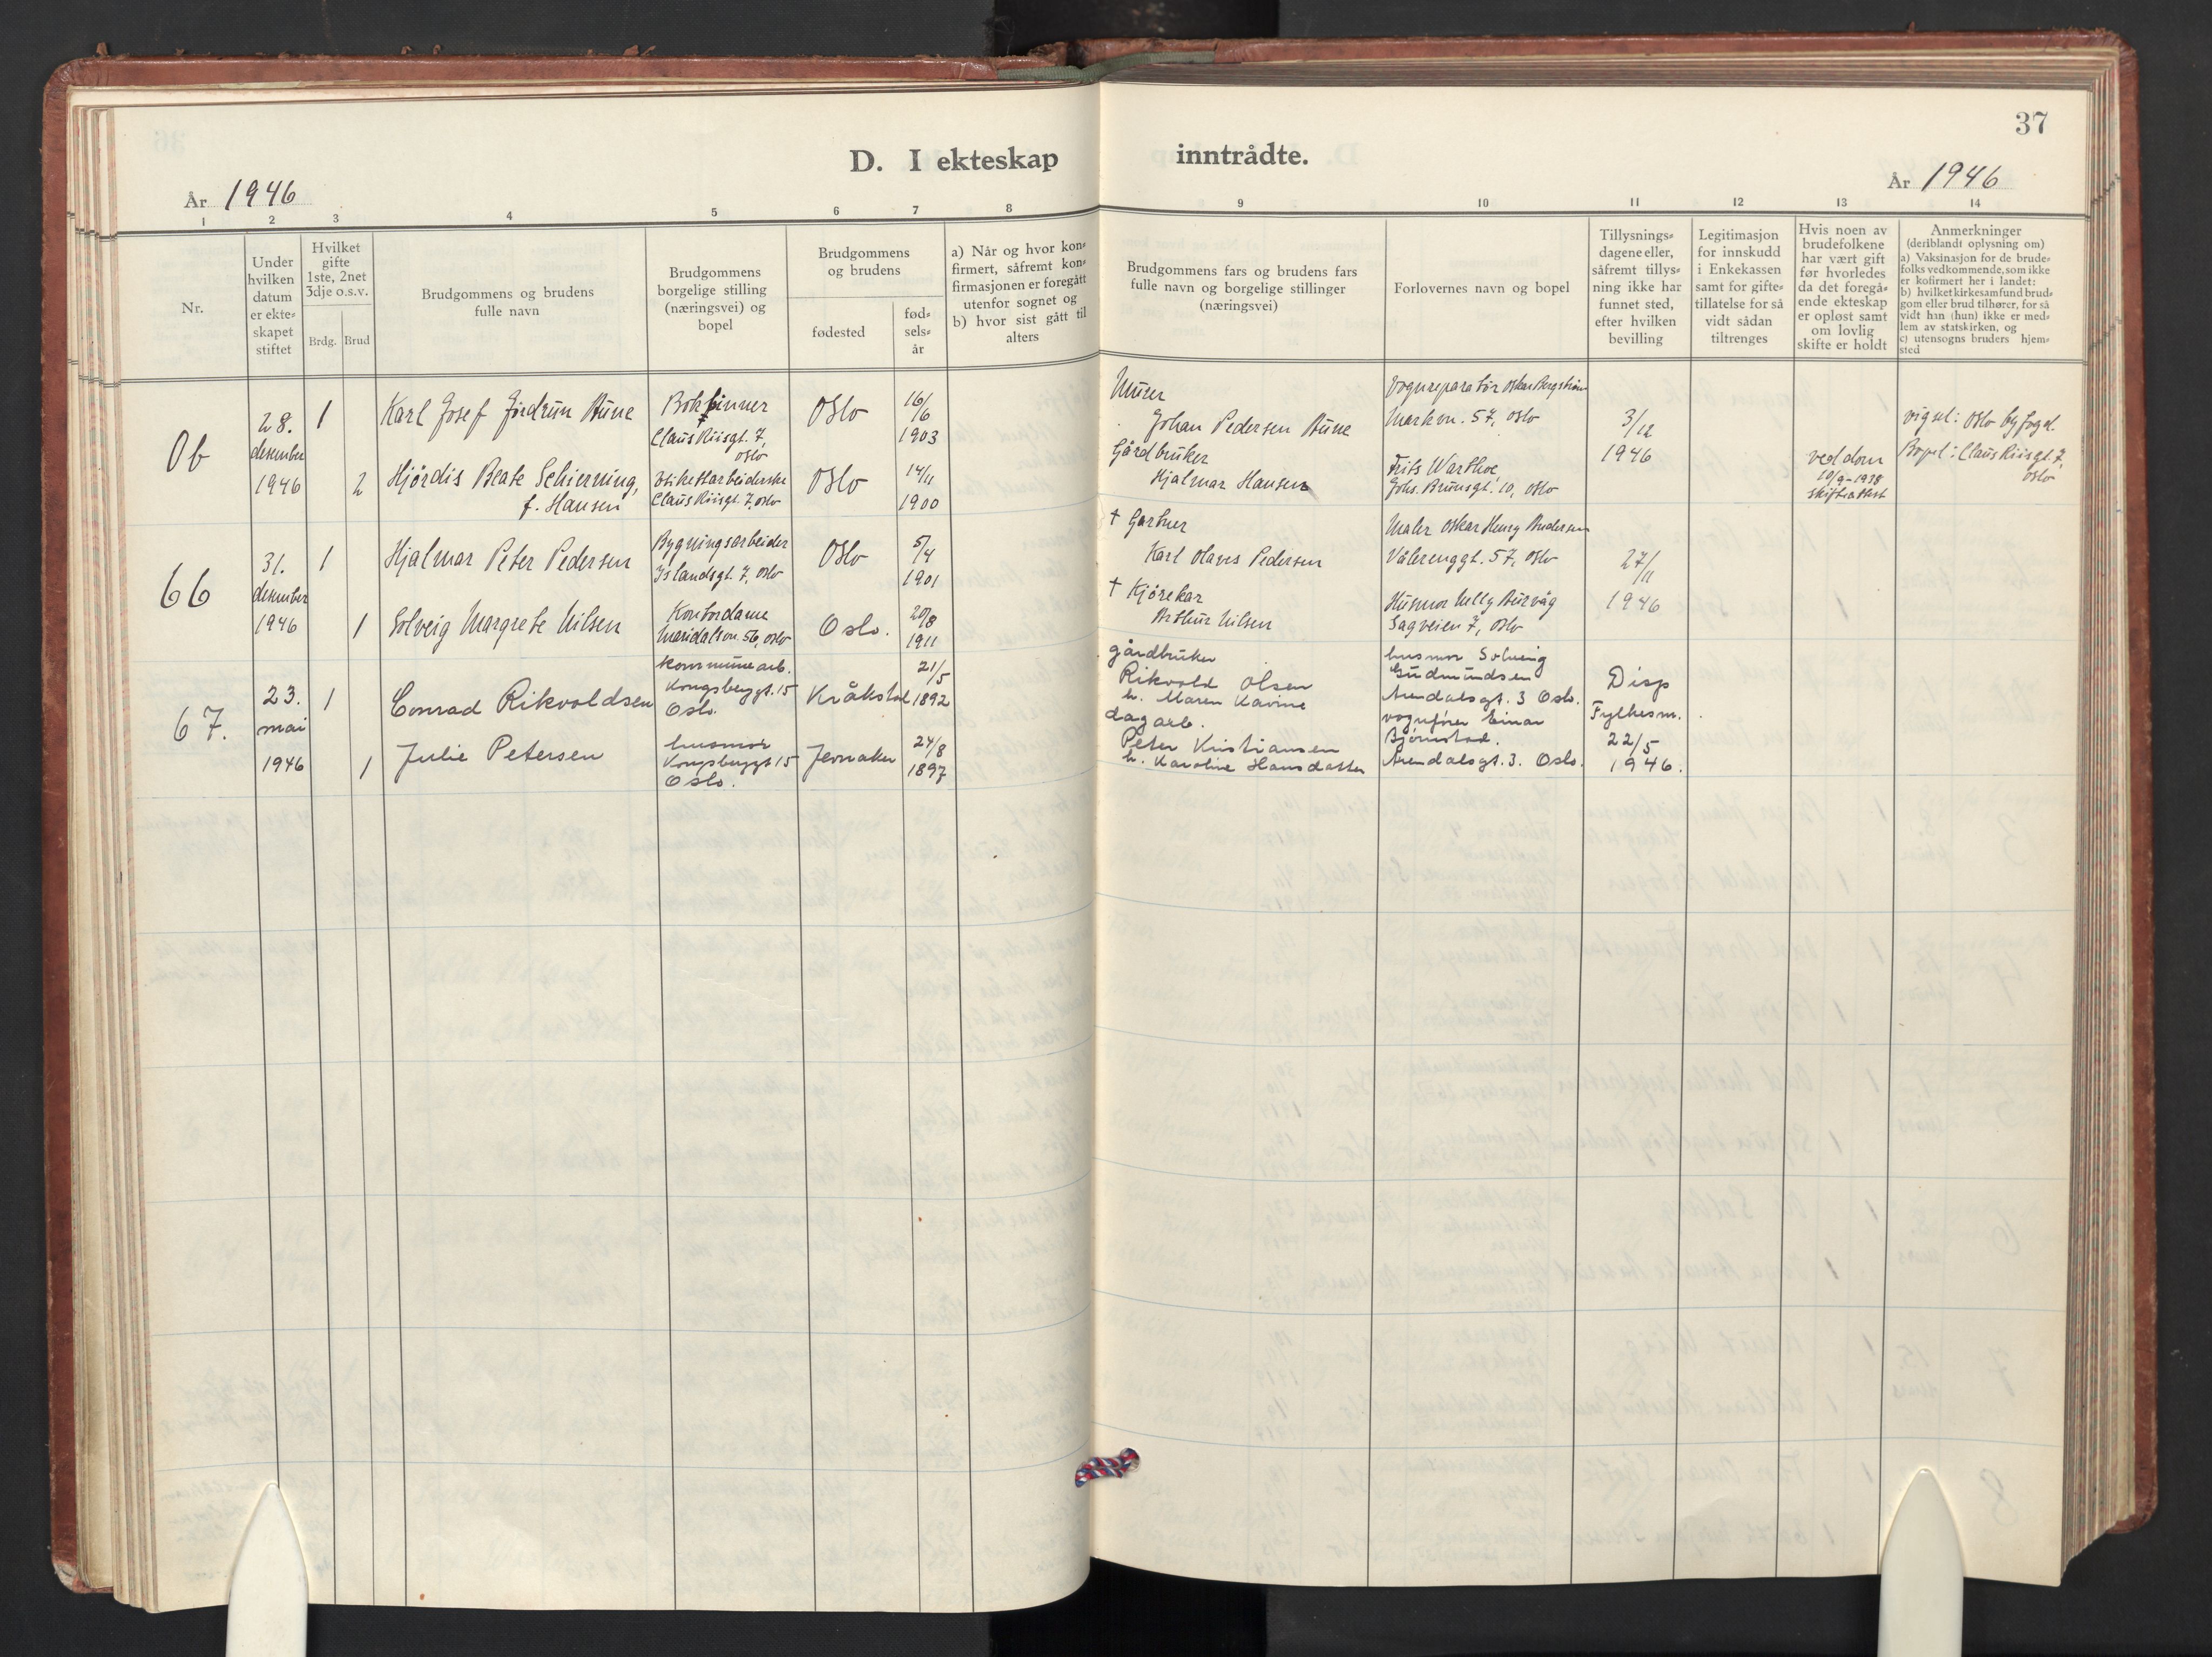 37
D. I ekteskap inntrådte.
År 1946
År 1946
1 2 3 4 5 6 7 8 9 10 11 12 13 14
Nr.
Under
hvilken
datum
er ekte-
skapet
stiftet
Hvilket
gifte
1ste, 2net
3dje o.s.v.
Brdg. Brud
Brudgommens og brudens
fulle navn
Brudgommens
borgelige stilling
(næringsvei) og
bopel
Brudgommens
og brudens
fødested
fød-
sels-
år
a) Når og hvor kon-
firmert, såfremt kon-
firmasjonen er foregått
utenfor sognet og
b) hvor sist gått til
alters
Brudgommens fars og brudens fars
fulle navn og borgelige stillinger
(næringsvei)
Forlovernes navn og bopel
Tillysnings-
dagene eller,
såfremt tillys-
ning ikke har
funnet sted,
efter hvilken
bevilling
Legitimasjon
for innskudd
i Enkekassen
samt for gifte-
tillatelse for så
vidt sådan
tiltrenges
Hvis noen av
brudefolkene
har vært gift
før hvorledes
da det foregå-
ende ekteskap
er opløst samt
om lovlig
skifte er holdt
Anmerkninger
(deriblandt oplysning om)
a) Vaksinasjon for de brude-
folks vedkommende, som ikke
er kofirmert her i landet:
b) hvilket kirkesamfund brud-
gom eller brud tilhører, for så
vidt han (hun) ikke er med-
lem av statskirken, og
c) utensogns bruders hjem-
sted
Ob
28.
desember
1946
1
Karl Josef Jordrun Bune
Bokbinner
Claus Riisgt. 7,
Oslo
Oslo
16/6
1903
Murer
Johan Pedersen Bune
Vognreparatør Oskar Bergstrøm
Markvn. 57, Oslo
3/12
1946
vigsel: Oslo byfogd.
Bopel: Claus Riisgt. 7,
Oslo
2
Hjørdis Beate Schierning,
f. Hansen
Etikettarbeiderske
Claus Riisgt. 7, Oslo
Oslo
14/11
1900
Gårdbruker
Hjalmar Hansen
Frits Warthoe
Johs. Brunsgt. 10, Oslo
ved dom
10/9-1938
66
31.
desember
1946
1
Hjalmar Peter Pedersen
Bygningsarbeider
Islandsgt. 7, Oslo
Oslo
5/4
1901
† Gartner
Karl Olaves Pedersen
Maler Oskar Henry Andersen
Vålerenggt. 57, Oslo
27/11
1946
1
Solveig Margrete Nilsen
Kontordame
Maridalsvn. 56, Oslo
Oslo.
20/8
1911
† Kjørekar
Arthur Nilsen
Husmor Nelly Burvåg
Sagveien 7, Oslo
67.
23.
mai
1946
1
Conrad Rikvoldsen
kommunearb.
Kongsberggt. 15
Oslo.
Kråkstad
21/5
1892
gårdbruker
Rikvold Olsen
h. Maren Karine
husmor Solveig
Gudmundsen
Arendalsgt. 3 Oslo.
Disp
Fylkesm.
22/5
1946.
1
Julie Petersen
husmor
Kongsberggt 15
Oslo.
Jevnaker
24/8
1897
dagarb.
Peter Kristiansen
h. Karoline Hansdatter
vognfører Einar
Bjørnstad.
Arendalsgt. 3. Oslo.